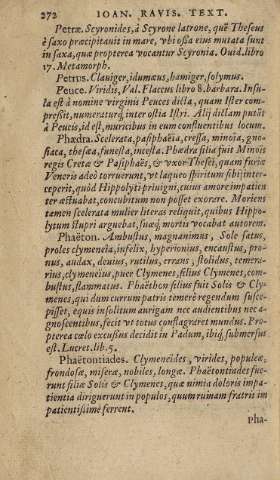 272 IOAN. RAVIS. TEXT.
Petræ. Scyronides, à Scyrone latrone, quē Theseus
è saxo præcipitauit in mare, vbi ossa eius mutata sunt
in saxa, quæ propterea vocantur Scyronia. Ouid. libro
17. Metamorph.
Petrus. Clauiger, idumæus, hamiger, solymus.
Peuce. Viridis, Val. Flaccus libro 8. barbara. Insu-
la est à nomine virginis Peuces dicta, quam Ister com-
pressit, numeraturq́; inter ostia Istri. Alij dictam putāt
à Peucis, id est, muricibus in eum confluentibus locum.
Phædra. Scelerata, pasiphaëia, cressa, minoia, gno-
siaca, thesæa, funesta, incesta. Phædra filia fuit Minois
regis Cretæ & Pasiphaës, & vxor Thesei, quam furiæ
Veneris adeò torruerunt, vt laqueo spiritum sibi inter-
ceperit, quòd Hippolyti priuigni, cuius amore impatien
ter æstuabat, concubitum non posset exorare. Moriens
tamen scelerata mulier literas reliquit, quibus Hippo-
lytum stupri arguebat, suæq́; mortis vocabat autorem.
Phaëton. Ambustus, magnanimus, Sole satus,
proles clymeneia, infelix, hyperionius, encaustus, pro-
nus, audax, deuius, rutilus, errans, stolidus, temera-
rius, clymeneius, puer Clymenes, filius Clymenes, com-
bustus, flammatus. Phaëthon filius fuit Solis & Cly-
menes, qui dum currum patris temerè regendum susce-
pisset, equis insolitum aurigam nec audientibus nec a-
gnoscentibus, fecit vt totus conflagraret mundus. Pro-
pterea cælo excussus decidit in Padum, ibiq́; submersus
est. Lucret. lib. 5.
Phaëtontiades. Clymeneides, virides, populeæ,
frondosæ, miseræ, nobiles, longæ. Phaëtontiades fue-
runt filiæ Solis & Clymenes, quæ nimia doloris impa-
tientia diriguerunt in populos, quum rumam fratris im
patientissimè ferrent.
Pha-